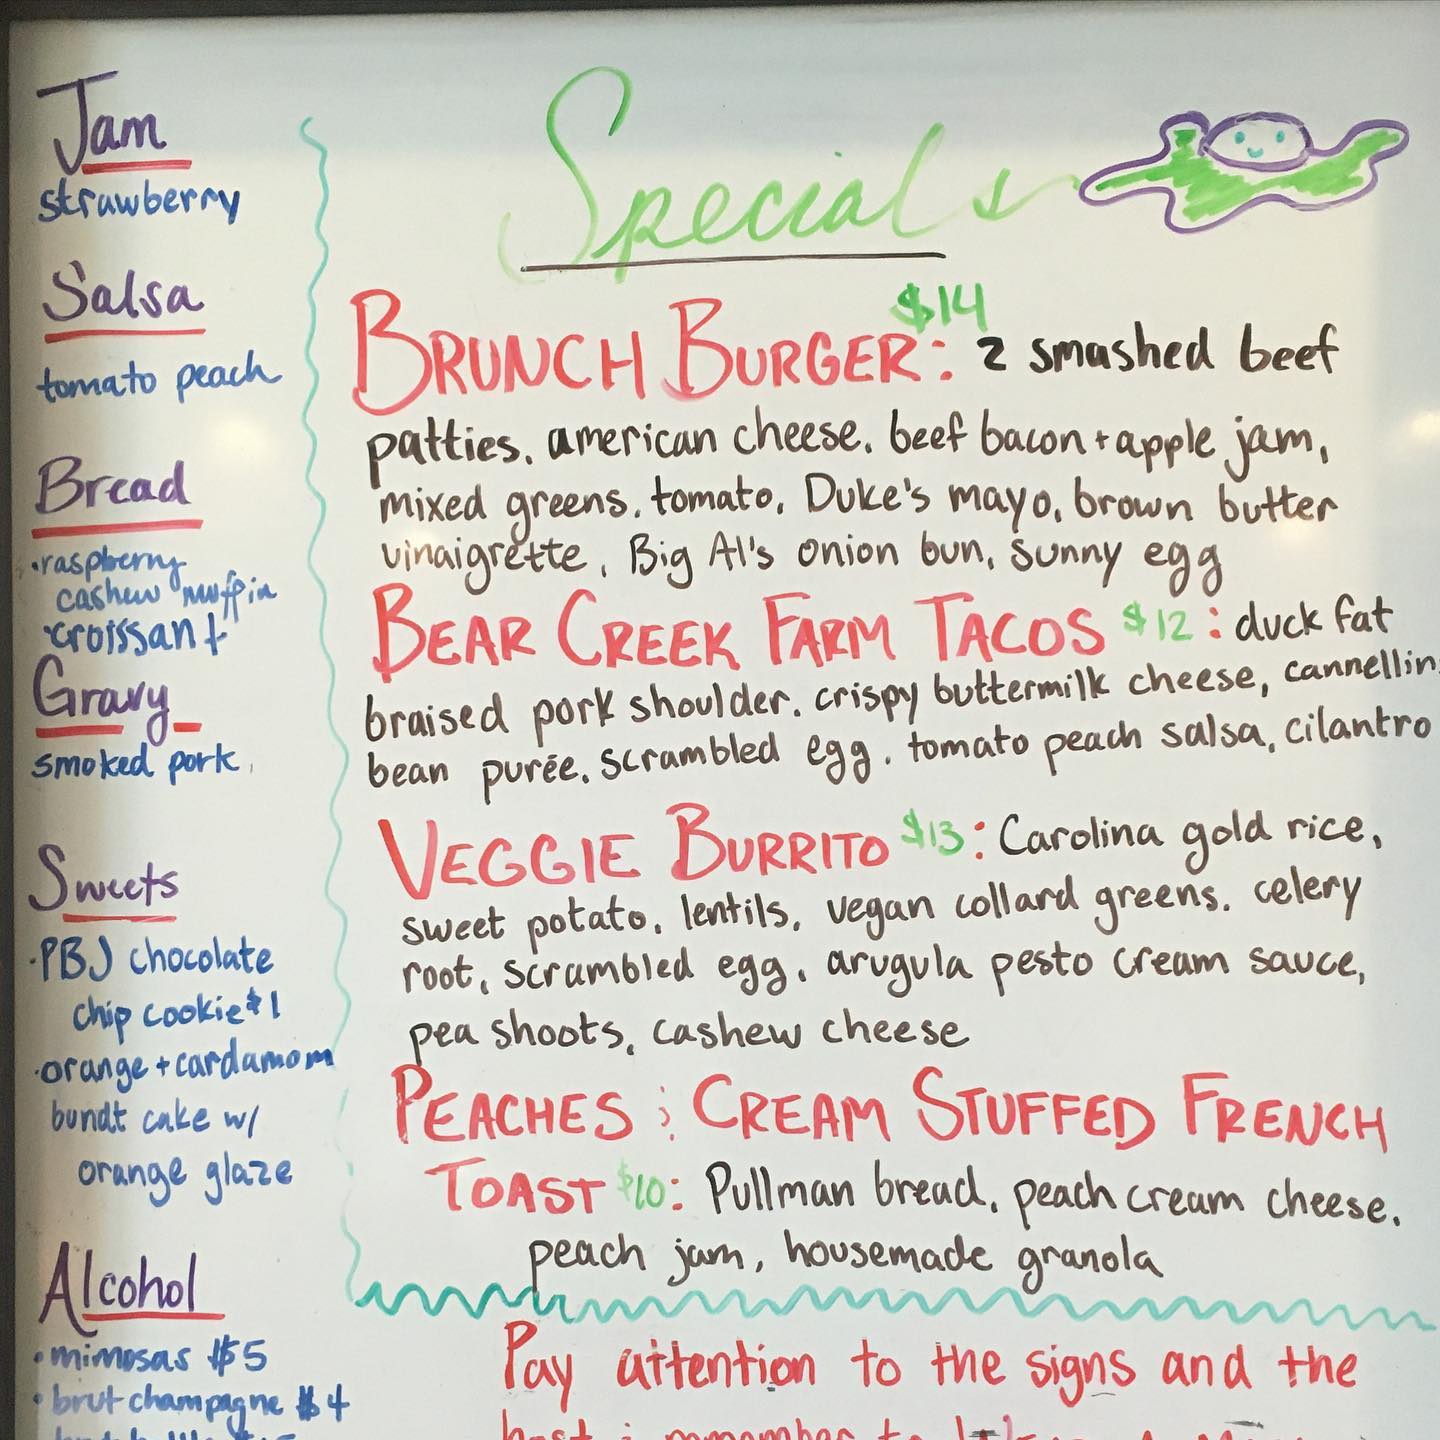 Jam
strawberry
Salsa
tomato peach
Bread
•raspberry
cashew muffin
•croissant
Gravy
smoked pork
Sweets
•PBJ chocolate
chip cookie $1
•orange + cardamom
bundt cake w/
orange glaze
Alcohol
•mimosas $5
•brut champagne $4
Specials
BRUNCH BURGER $14: 2 smashed beef
patties, american cheese, beef bacon + apple jam,
mixed greens, tomato, Duke's mayo, brown butter
vinaigrette, Big Al's onion bun, sunny egg
BEAR CREEK FARM TACOS $12: duck fat
braised pork shoulder, crispy buttermilk cheese, cannellin
bean purée, scrambled egg, tomato peach salsa, cilantro
VEGGIE BURRITO $13: Carolina gold rice,
sweet potato, lentils, vegan collard greens, celery
root, scrambled egg, arugula pesto cream sauce,
pea shoots, cashew cheese
PEACHES & CREAM STUFFED FRENCH
TOAST $10: Pullman bread, peach cream cheese,
peach jam, housemade granola
Pay attention to the signs and the